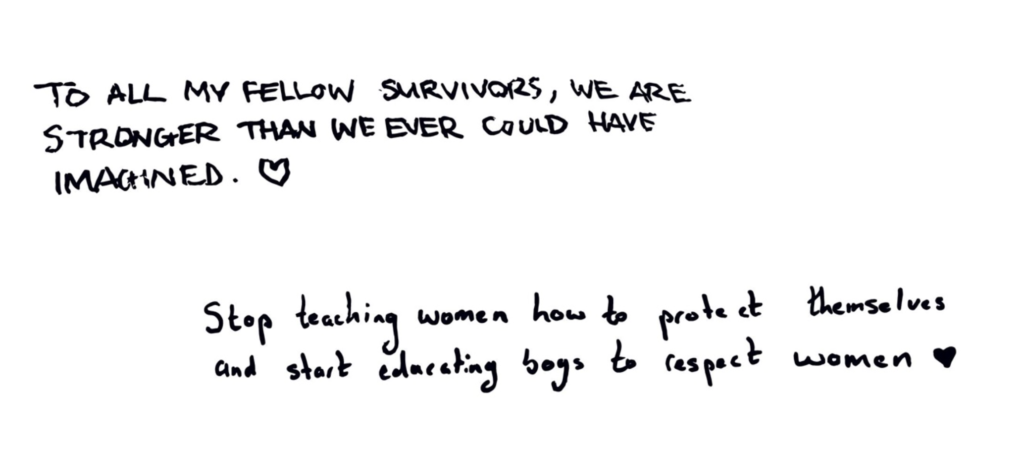 TO ALL MY FELLOW SURVIVORS, WE ARE
STRONGER THAN WE EVER COULD HAVE
IMAGINED. ♡
Stop teaching women how to protect themselves
and start educating boys to respect women ♥